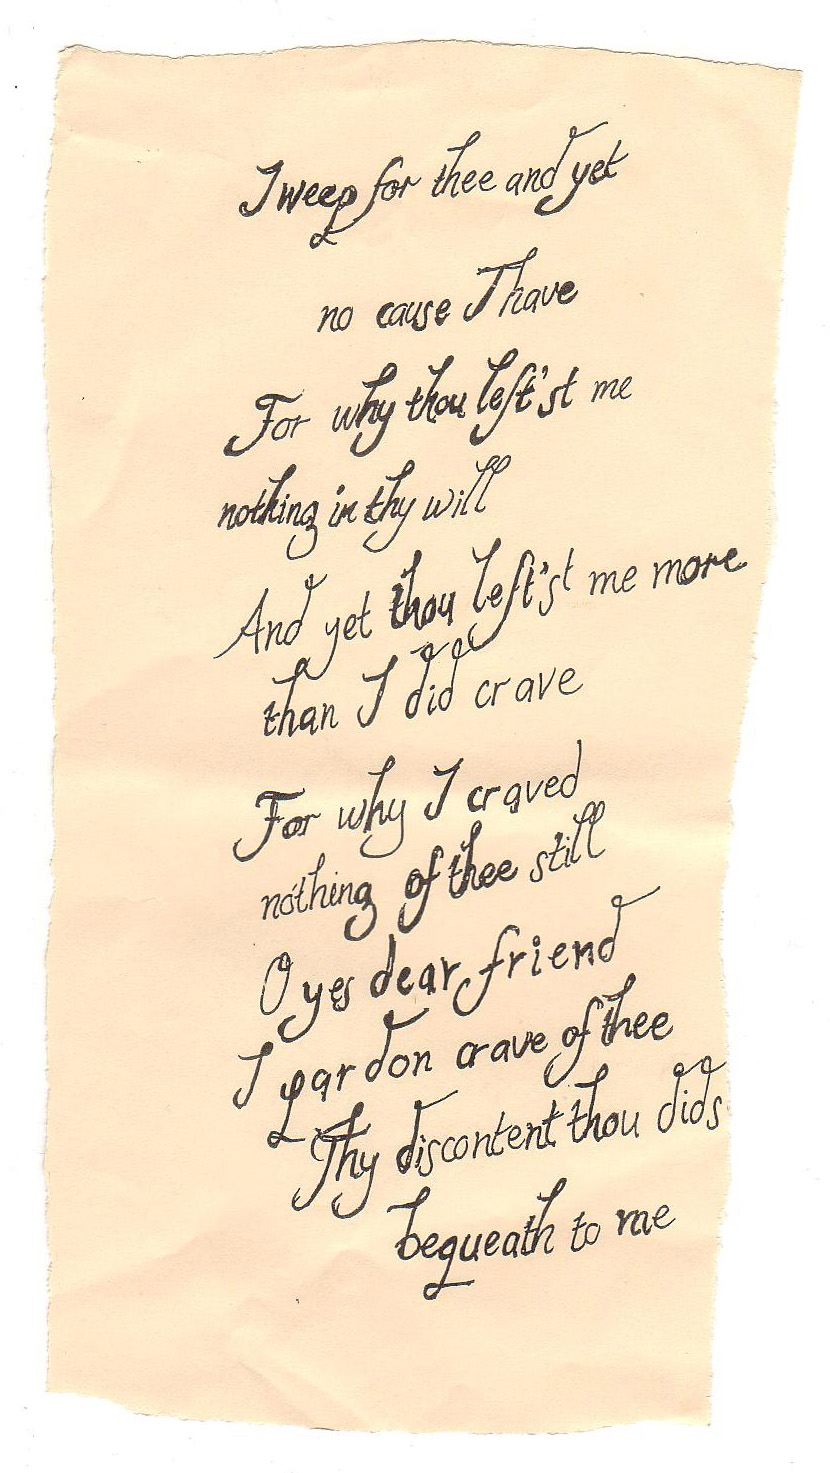 I weep for thee and yet
no cause I have
For why thou left'st me
nothing in thy will
And yet thou left'st me more
than I did crave
For why I craved
nothing of thee still
O yes dear friend
I pardon crave of thee
Thy discontent thou dids
bequeath to me